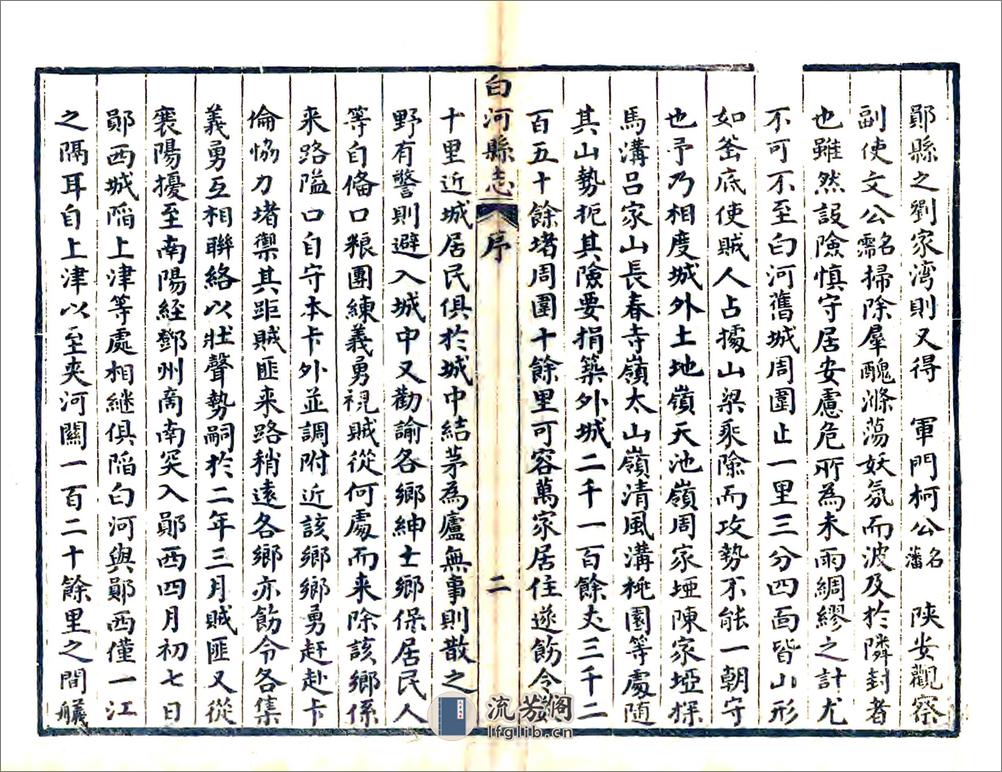 鄖縣之劉家湾則又得　軍門柯公名藩　陕安觀察
副使文公名霈掃除犀醜滌蕩妖氛而波及於隣封者
也雖然設險慎守居安慮危所為未雨綢繆之計尤
不可不至白河舊城周圍止一里三分四面皆山形
如釜底使賊人占據山梁乘除而攻势不能一朝守
也予乃相度城外土地嶺天池嶺周家埡陳家埡探
馬溝呂家山長春寺嶺太山嶺清風溝桃園等處随
其山勢扼其險要捐築外城二千一百餘丈三千二
百五十餘堵周圍十餘里可容萬家居住遂飭令
白河縣志
序
二
十里近城居民俱於城中結茅為廬無事則散之
野有警則避入城中又勸諭各鄉紳士鄉保居民人
等自偹口粮團練義勇視賊從何處而来除該鄉係
来路隘口自守本卡外並調附近該鄉鄉勇赶赴卡
倫恊力堵禦其距賊匪来路稍遠各鄉亦飭令各集
義勇互相聯絡以壯聲勢嗣於二年三月賊匪又從
襄陽擾至南陽經鄧州商南突入鄖西四月初七日
鄖西城陷上津等處相継俱陷白河與鄖西僅一江
之隔耳自上津以至夹河關一百二十餘里之間
流芳阁
lfglib.cn